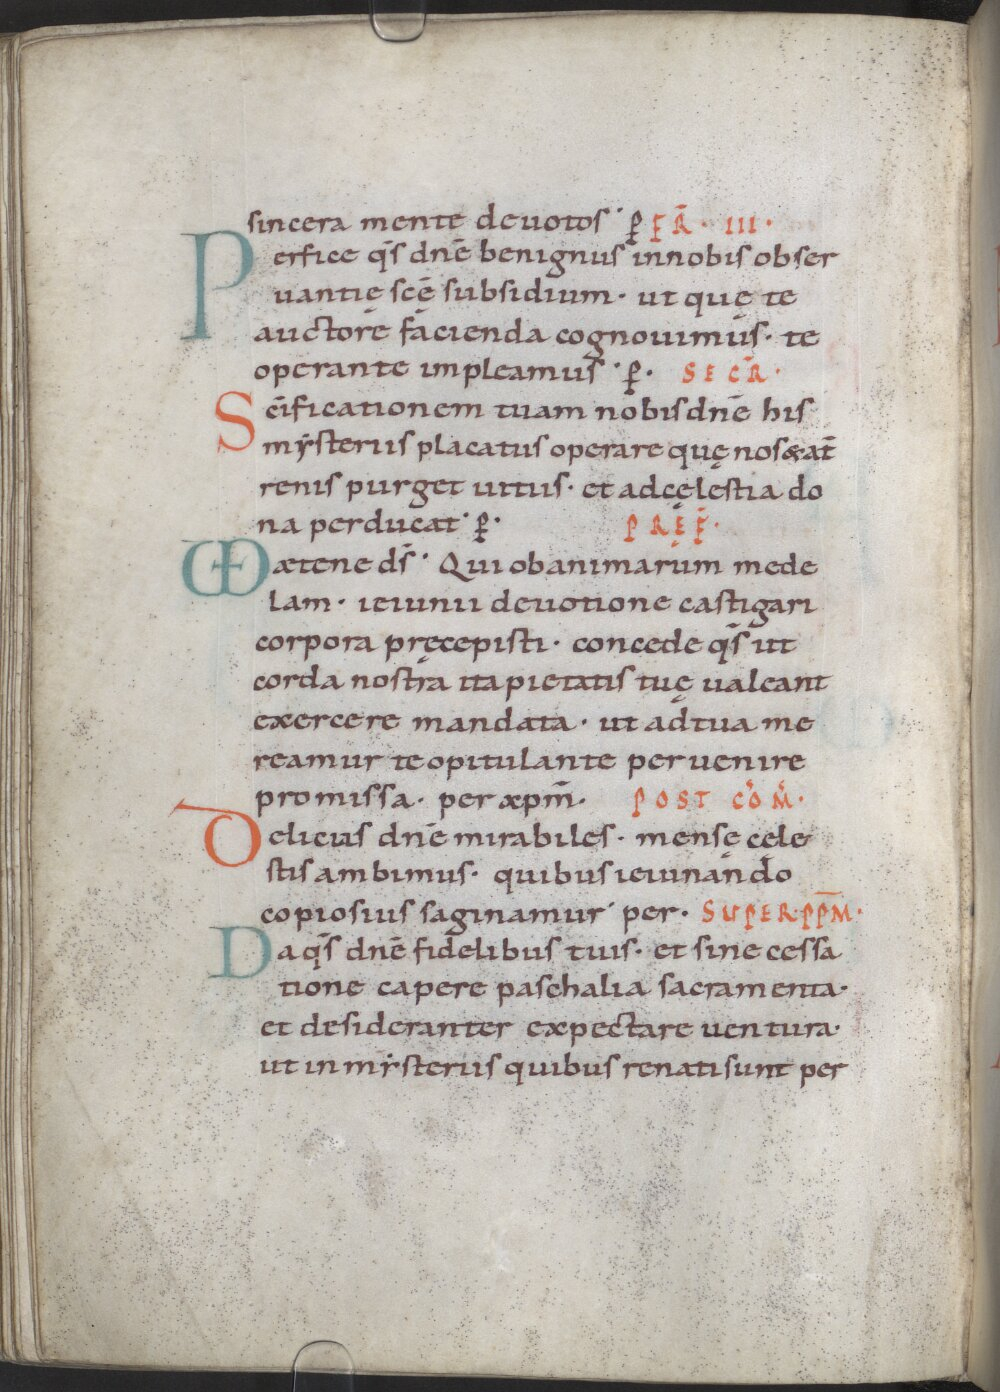 sincera mente deuotos· ꝑ FER̄· III·
Perfice q̄s dn̄e benignus innobis obser
uantię scę̄ subsidium· ut quę te
auctore facienda cognouimus· te
operante impleamus· ꝑ· SECR̄·
Sc̄ificationem tuam nobis dn̄e his
mẏsteriis placatus operare quę nos & at̄
renis purget uitiis· et adcęlestia do
na perducat· ꝑ· PRĘF̄·
VD ætene ds̄· Qui obanimarum mede
lam· ieiunii deuotione castigari
corpora pręcepisti· concede q̄s ut
corda nostra ita pietatis tuę ualeant
exercere mandata· ut adtua me
reamur te opitulante peruenire
promissa· per xp̄m· POST COM̄·
Deliciis dn̄e mirabiles· mensę cęle
stis ambimus· quibus ieiunando
copiosius saginamur· per· SUPER·PP̄M·
Da q̄s dn̄e fidelibus tuis· et sine cessa
tione capere paschalia sacramenta·
et desideranter expectare uentura·
ut in mẏsteriis quibus renati sunt per